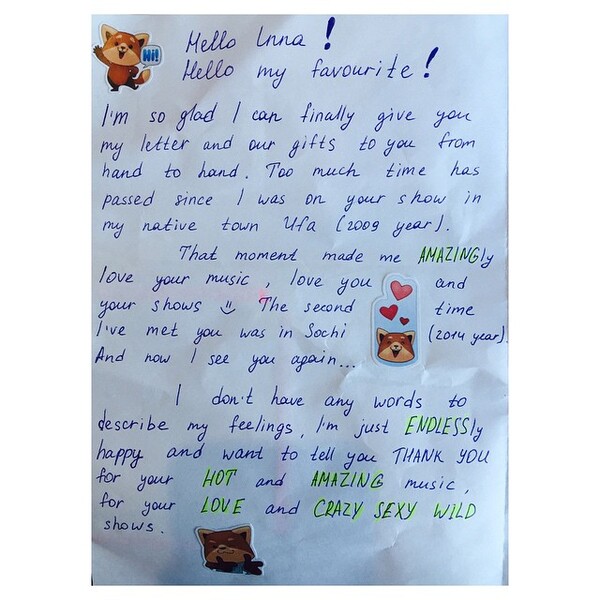 Hi!
Hello Inna!
Hello my favourite!
I'm so glad I can finally give you
my letter and our gifts to you from
hand to hand. Too much time has
passed since I was on your show in
my native town Ufa (2009 year).
That moment made me AMAZINGly
love your music, love you and
your shows :) The second time
I've met you was in Sochi (2014 year).
And now I see you again...
I don't have any words to
describe my feelings, I'm just ENDLESSly
happy and want to tell you THANK YOU
for your HOT and AMAZING music,
for your LOVE and CRAZY SEXY WILD
shows.